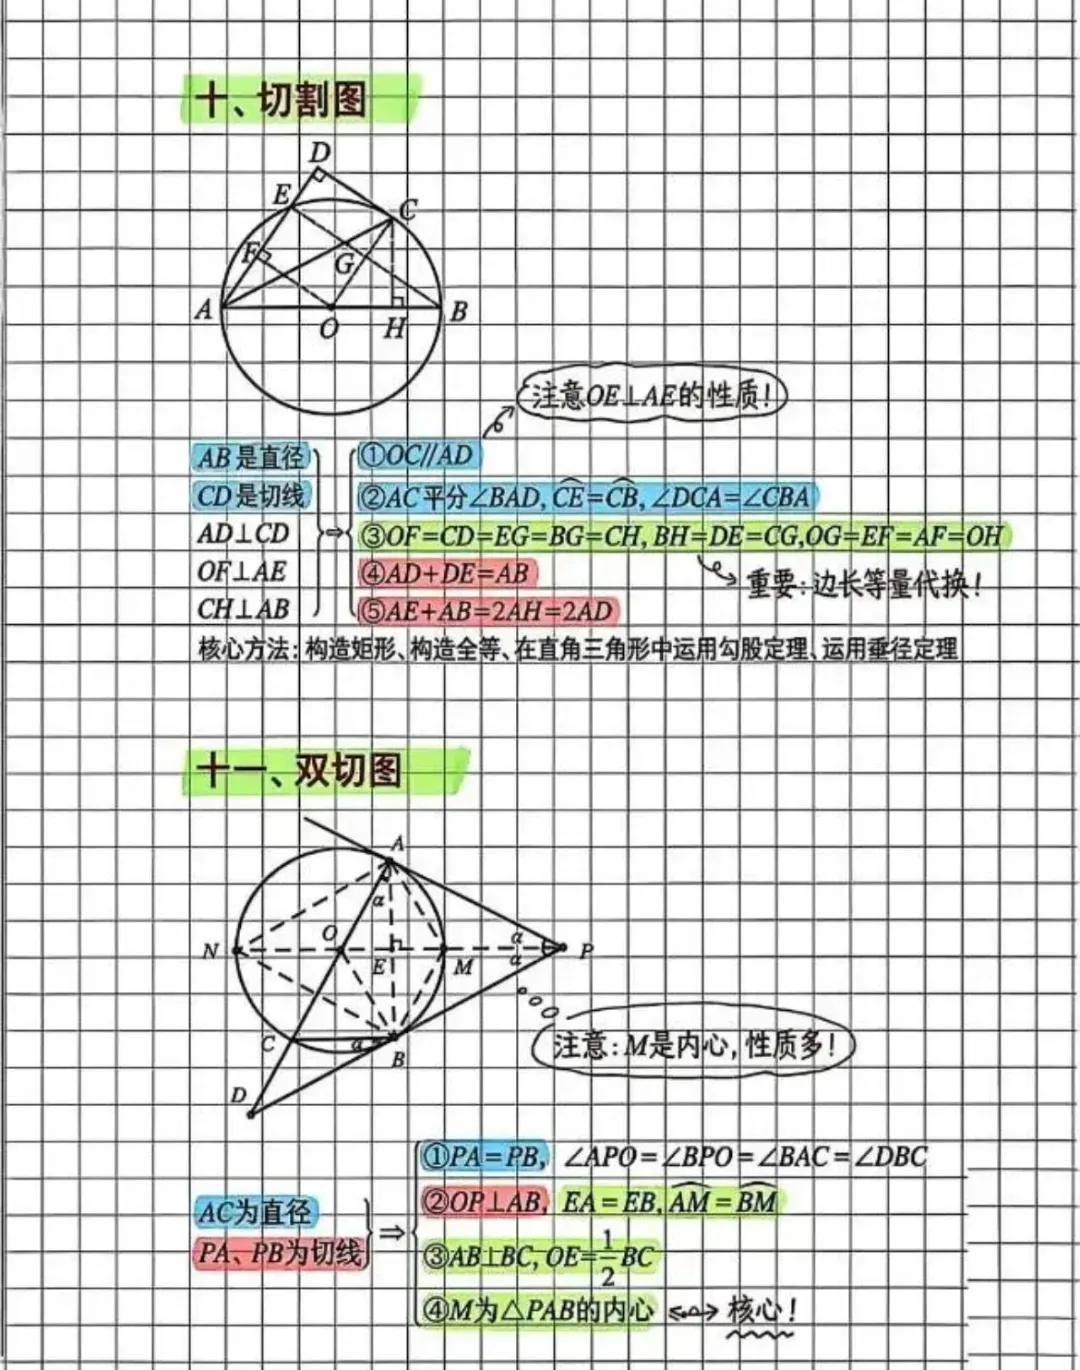 十、切割图
D
E
C
F
G
A
B
O
H
注意OE⊥AE的性质!
AB是直径
CD是切线
AD⊥CD
OF⊥AE
CH⊥AB
⇒
①OC//AD
②AC平分∠BAD, C͡E=C͡B, ∠DCA=∠CBA
③OF=CD=EG=BG=CH, BH=DE=CG,OG=EF=AF=OH
④AD+DE=AB
⑤AE+AB=2AH=2AD
重要:边长等量代换!
核心方法:构造矩形、构造全等、在直角三角形中运用勾股定理、运用垂径定理
十一、双切图
A
α
O
α
N
E
M
α
P
C
α
B
D
注意:M是内心,性质多!
AC为直径
PA、PB为切线
⇒
①PA=PB, ∠APO=∠BPO=∠BAC=∠DBC
②OP⊥AB, EA=EB, A͡M=B͡M
③AB⊥BC, OE=1/2BC
④M为△PAB的内心 ↔ 核心!